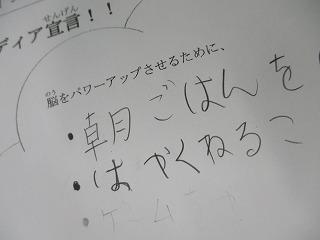 ディア宣言！！
せんげん
のう
脳をパワーアップさせるために、
・朝ごはんを
・はやくねるこ
・ゲーム